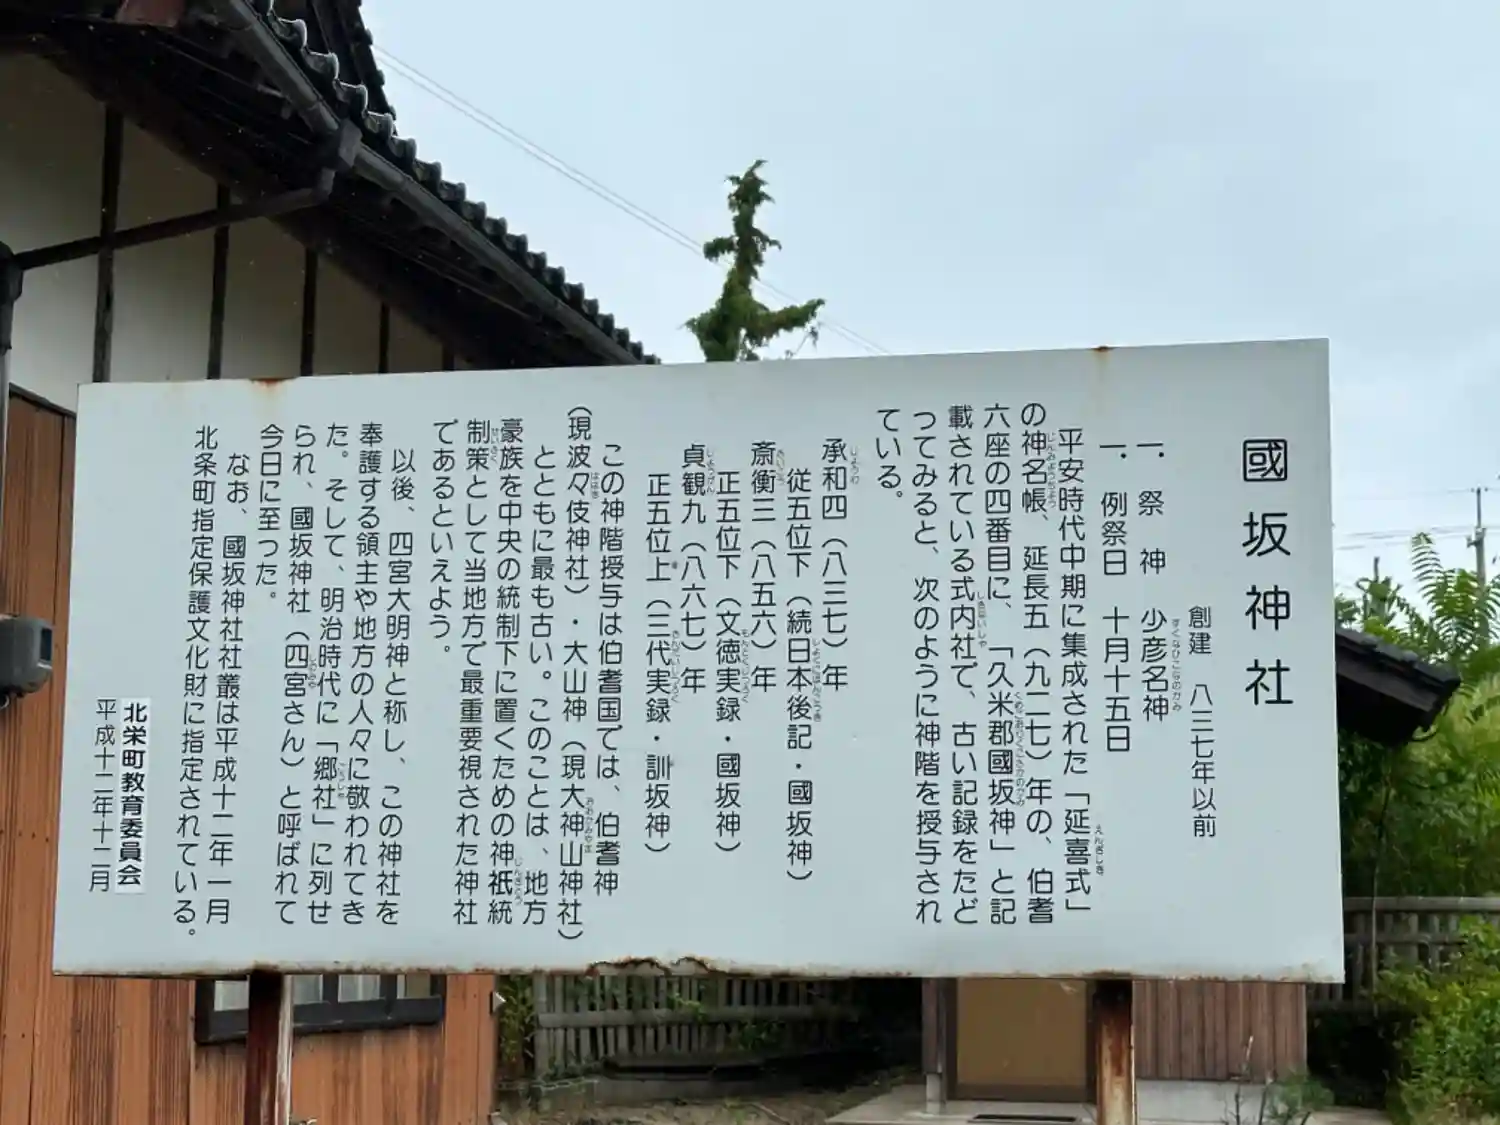 國坂神社
創建　八三七年以前
一．祭　神　少彦名神
一．例祭日　十月十五日
平安時代中期に集成された「延喜式」
の神名帳、延長五（九二七）年の、伯耆
六座の四番目に、「久米郡國坂神」と記
載されている式内社で、古い記録をたど
ってみると、次のように神階を授与され
ている。
承和四（八三七）年
従五位下（続日本後記・國坂神）
斎衡三（八五六）年
正五位下（文徳実録・國坂神）
貞観九（八六七）年
正五位上（三代実録・訓坂神）
この神階授与は伯耆国では、伯耆神
（現波々伎神社）・大山神（現大神山神社）
とともに最も古い。このことは、地方
豪族を中央の統制下に置くための神祇統
制策として当地方で最重要視された神社
であるといえよう。
以後、四宮大明神と称し、この神社を
奉護する領主や地方の人々に敬われてき
た。そして、明治時代に「郷社」に列せ
られ、國坂神社（四宮さん）と呼ばれて
今日に至った。
なお、國坂神社社叢は平成十二年一月
北条町指定保護文化財に指定されている。
北栄町教育委員会
平成十二年十二月